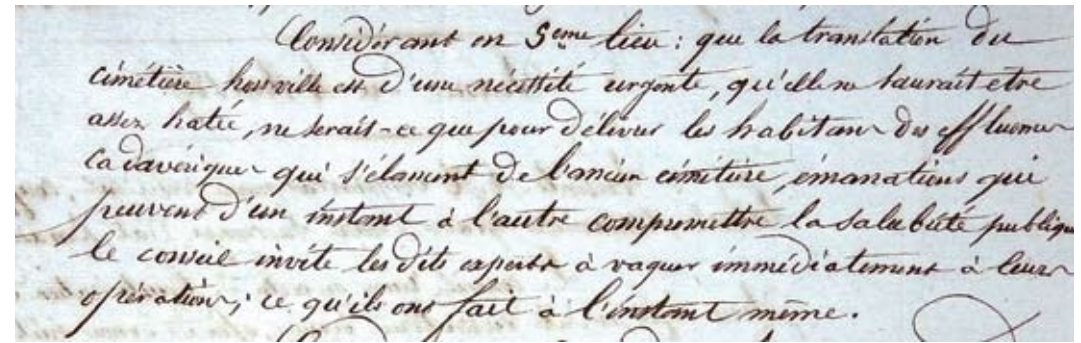 Considérant en 5eme lieu : que la translation du
cimétière hors ville est d'une nécessité urgente, qu'elle ne saurait etre
assez hatée, ne serait-ce que pour délivrer les habitans des effluences
cadavériques qui s'élancent de l'ancien cimétière, émanations qui
peuvent d'un instant à l'autre compromettre la salubrité publique
le conseil invite les dits experts à vaquer immédiatement à leurs
opération ; ce qu'ils ont fait à l'instant même.